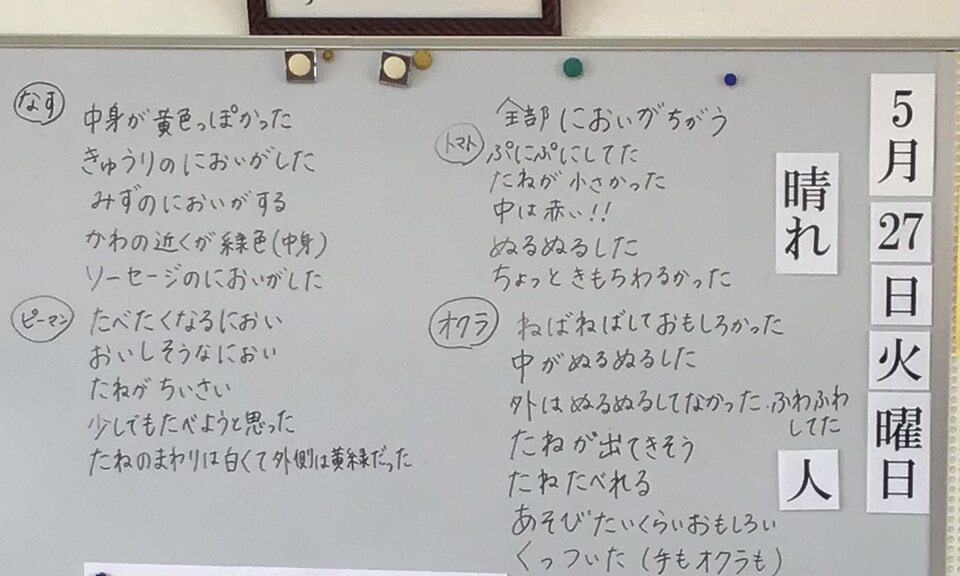 なす
中身が黄色っぽかった
きゅうりのにおいがした
みずのにおいがする
かわの近くが緑色(中身)
ソーセージのにおいがした
ピーマン
たべたくなるにおい
おいしそうなにおい
たねがちいさい
少しでもたべようと思った
たねのまわりは白くて外側は黄緑だった
全部においがちがう
トマト
ぷにぷにしてた
たねが小さかった
中は赤い!!
ぬるぬるした
ちょっときもちわるかった
オクラ
ねばねばしておもしろかった
中がぬるぬるした
外はぬるぬるしてなかった.ふわふわ
してた
たねが出てきそう
たねたべれる
あそびたいくらいおもしろい
くっついた(手もオクラも)
5月27日火曜日
晴れ
人